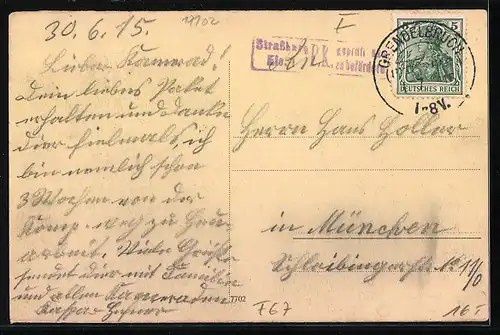 30. 6. 15.
7702
I
Lieber Kamerad!
Dein liebes Paket
erhalten und danke
dir vielmals, ich
bin nemlich schon
3 Wochen von der
Komp. weg zu
arbeit. Viele Grüße
sendet dir mit Familie
und allen Kameraden
Straßb
P.K. geprüft
zu beförd
GRENDELBRUCH
1-8V.
5
DEUTSCHES REICH
Herrn Hans Hollar
in München
Schleibingerstraße
7702
F67
16.-